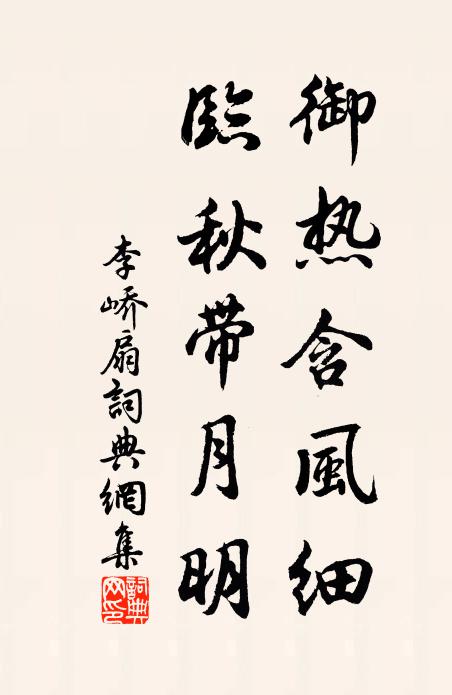 御热含風细
臨秋带月明
李峤扇詞典網集
詞典网印